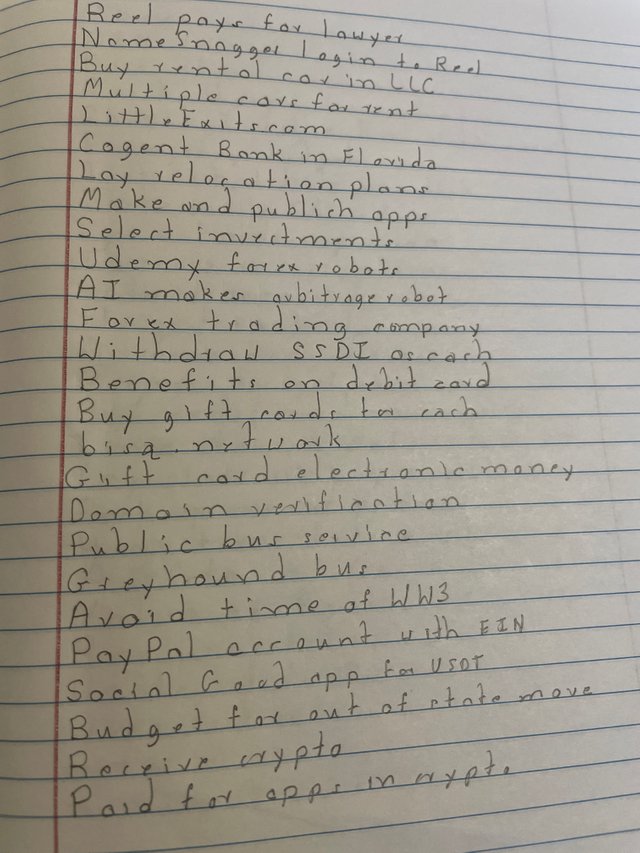 Reel pays for lawyer
NameSnagger login to Reel
Buy rental car in LLC
Multiple cars for rent
LittleExits.com
Cogent Bank in Florida
Lay relocation plans
Make and publich apps
Select invectments
Udemy forex robots
AI makes arbitrage robot
Forex trading company
Withdraw SSDI as cach
Benefits on debit card
Buy gift cards for cach
bisq.network
Gift card electronic money
Domain verification
Public bus service
Greyhound bus
Avoid time of WW3
PayPal account with EIN
Social Good app for USDT
Budget for out of state move
Receive crypto
Paid for apps in crypto